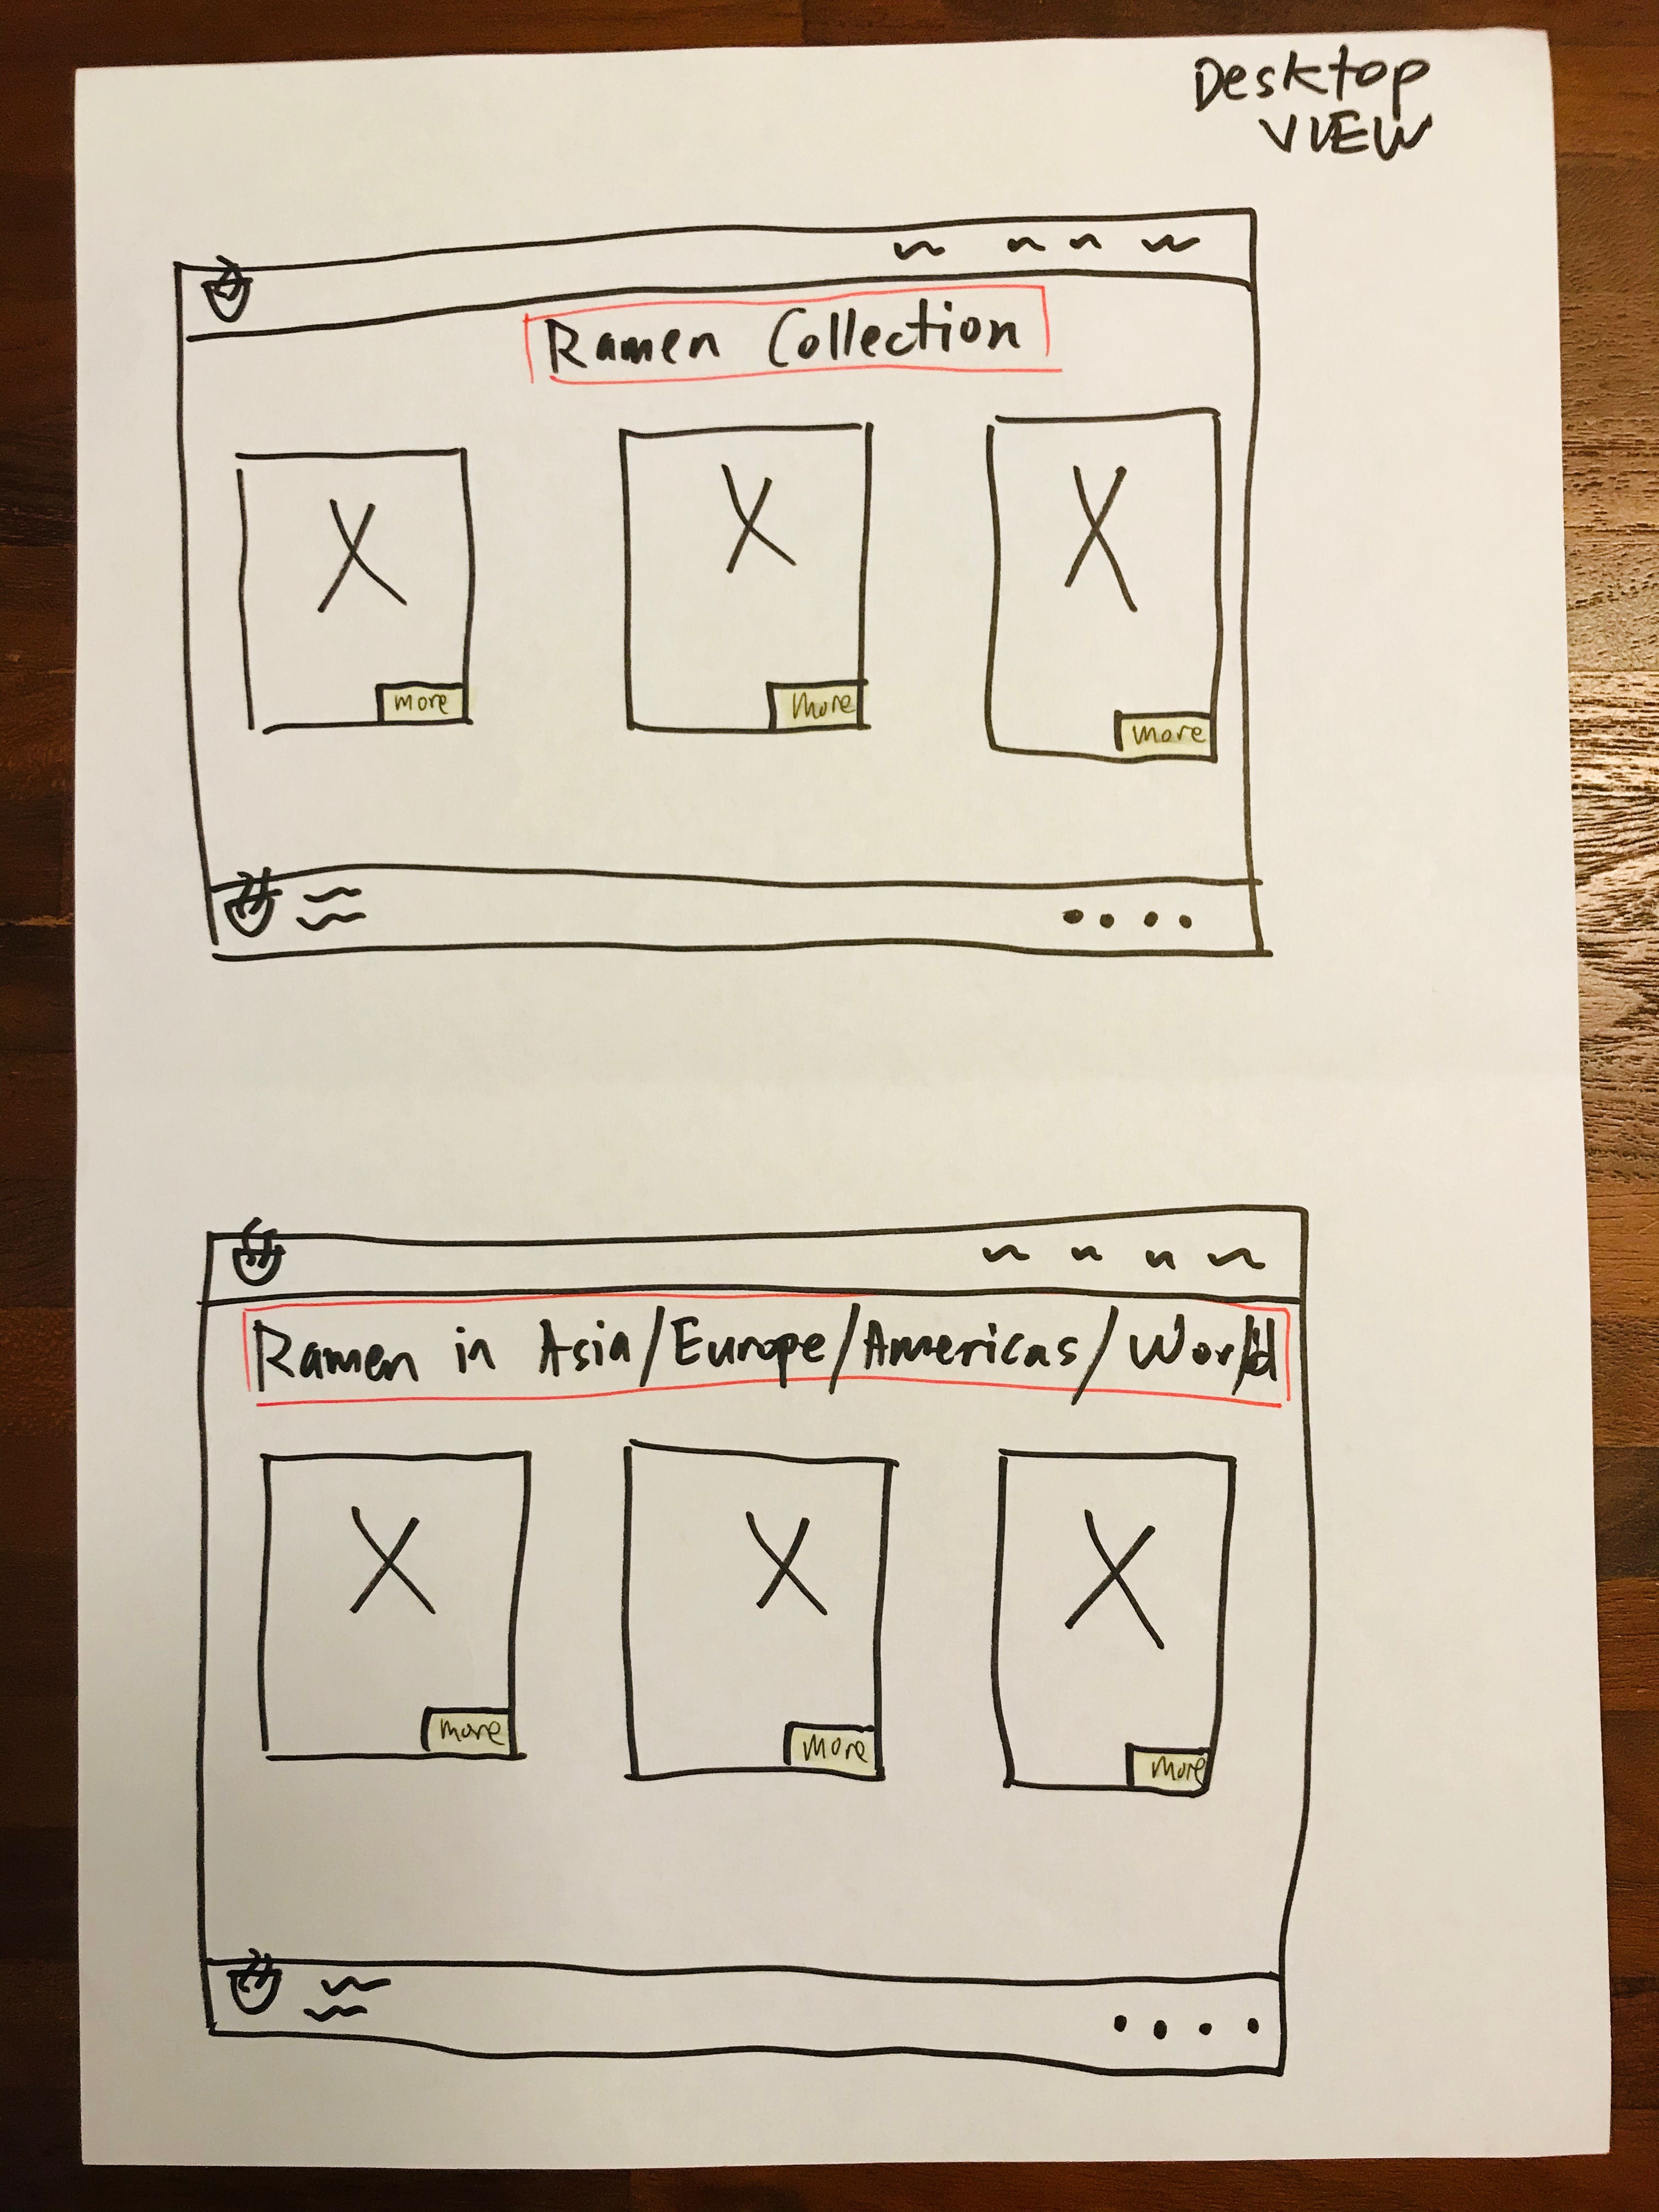 Desktop
VIEW
Ramen Collection
more
more
more
Ramen in Asia/Europe/Americas/World
more
more
more